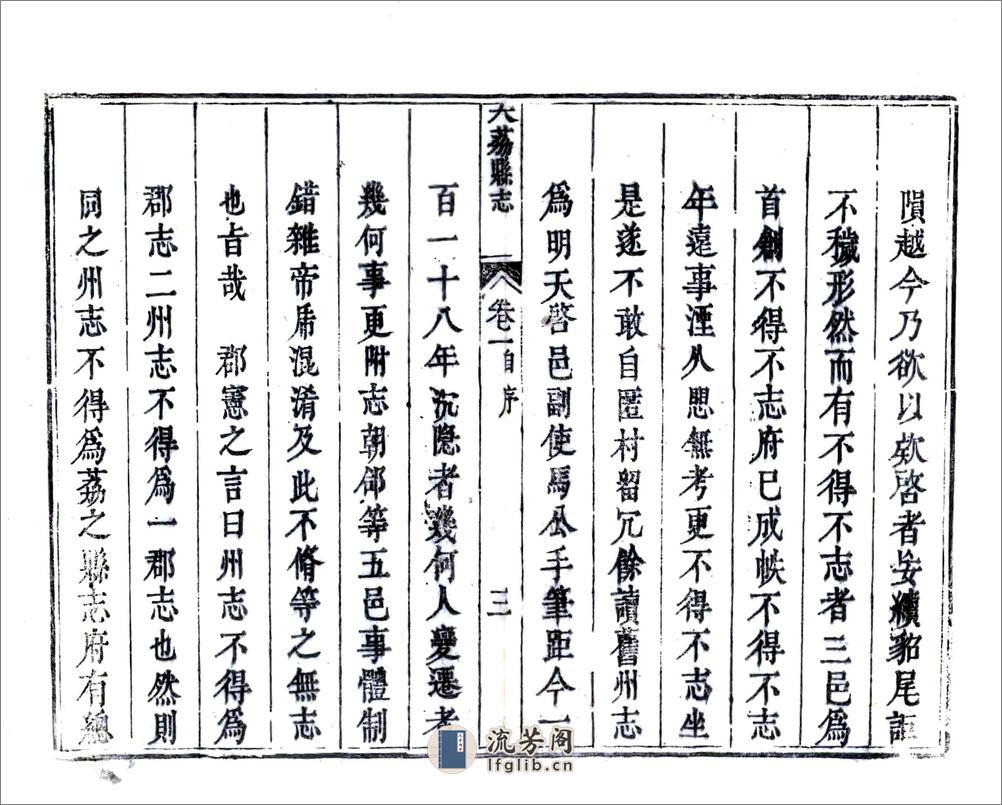 隕越今乃欲以欸啓者妄續貂尾詎
不穢形然而有不得不志者三邑爲
首創不得不志府已成帙不得不志
年遠事湮久思無考更不得不志坐
是遂不敢自匿村留冗餘讀舊州志
爲明天啓邑副使馬公手筆距今一
大荔縣志
卷一
自序
三
百一十八年沉隐者幾何人變遷者
幾何事更附志朝郃等五邑事體制
錯雜帝乕混淆及此不脩等之無志
也旨哉 郡憲之言曰州志不得爲
郡志二州志不得爲一郡志也然則
同之州志不得爲荔之縣志府有總
流芳阁
lfglib.cn